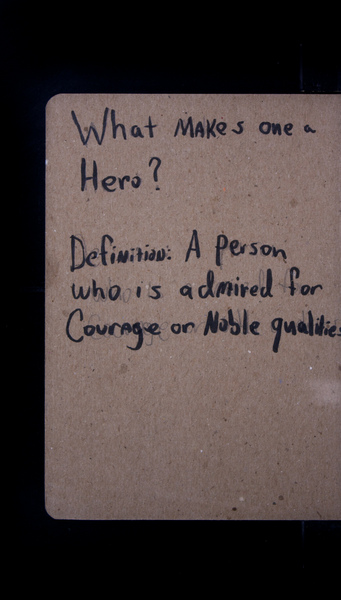 What MAKes one a
Hero?
Definition: A person
who is admired for
Courage or Noble qualities